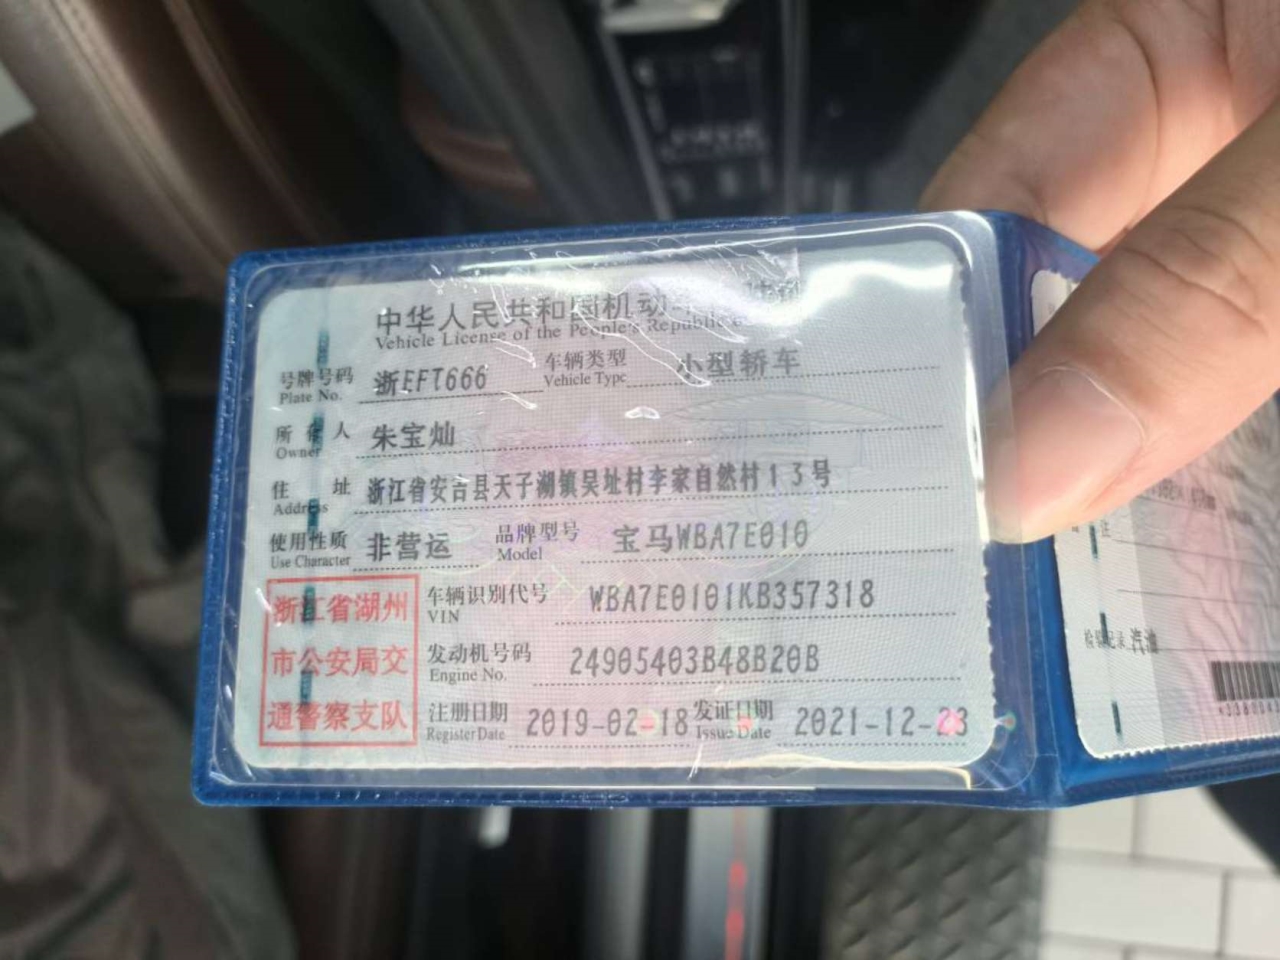 中华人民共和国机动
Vehicle License of the People's Republic
号牌号码 浙EFT666 车辆类型 小型轿车
Plate No. Vehicle Type
所有人 朱宝灿
Owner
住址 浙江省安吉县天子湖镇吴址村李家自然村13号
Address
使用性质 非营运 品牌型号 宝马WBA7E010
Use Character Model
浙江省湖州
市公安局交
通警察支队
车辆识别代号 WBA7E0101KB357318
VIN
发动机号码 24905403B48B20B
Engine No.
注册日期 2019-02-18 发证日期 2021-12-23
Register Date Issue Date
注
检验记录 汽油